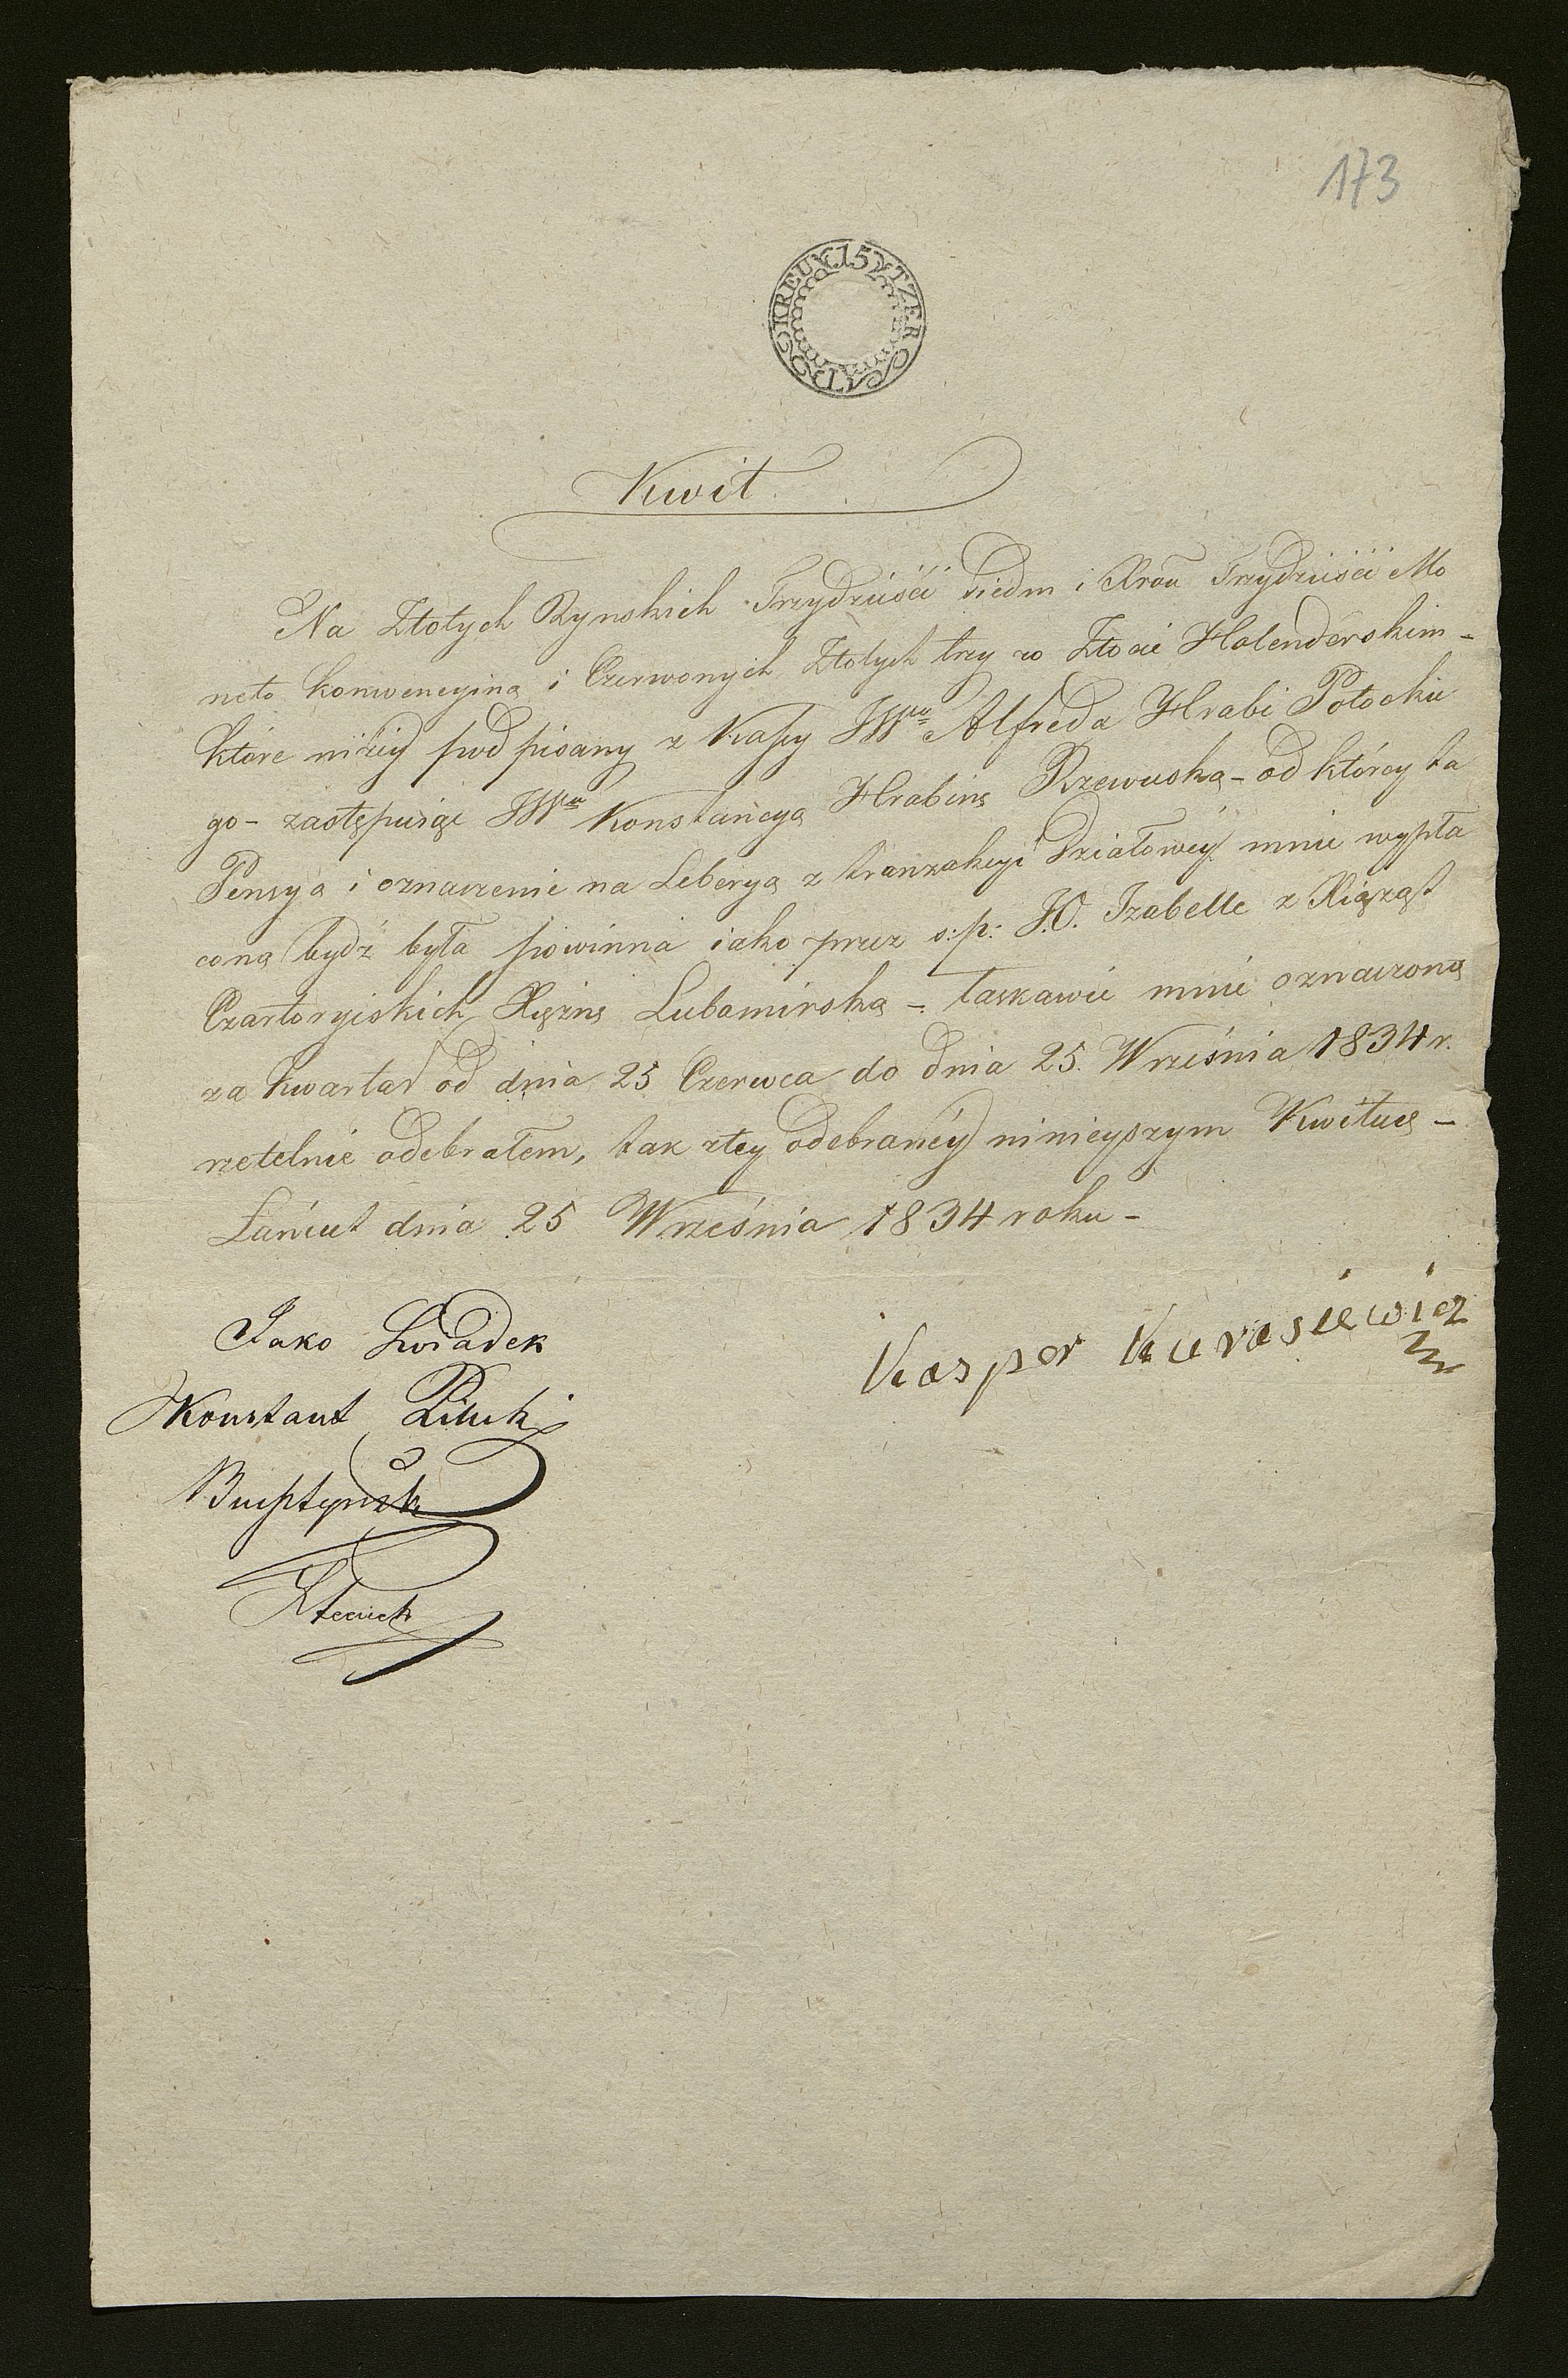 173
15 KREUTZER
Kwit.
Na Złotych Rynskich Trzydzieści siedm i Xrów Trzydzieści Mo
netą konwencyiną i Czerwonych Złotych trzy w Złocie Holenderskim -
które niżéy podpisany z Kassy JWgo Alfreda Hrabi Potockie
go - zastępuiąc JWą Konstancyą Hrabinę Rzewuską - od któréy ta
Pensya i oznaczenie na Leberyą z tranzakcyi Działowéy mnie wypła
coną bydź była powinna iako przez s:p: J.O. Izabelle z Xiążąt
Czartoryiskich Xiężnę Lubomirską - łaskawie mnie oznaczoną
za kwartał od dnia 25 Czerwca do dnia 25. Września 1834 r.
rzetelnie odebrałem, tak ztey odebranéy ninieyszym Kwituię -
Łańcut dnia 25 Września 1834 roku -
Jako Swiadek
Kasper Kurasiewicz
Konstant